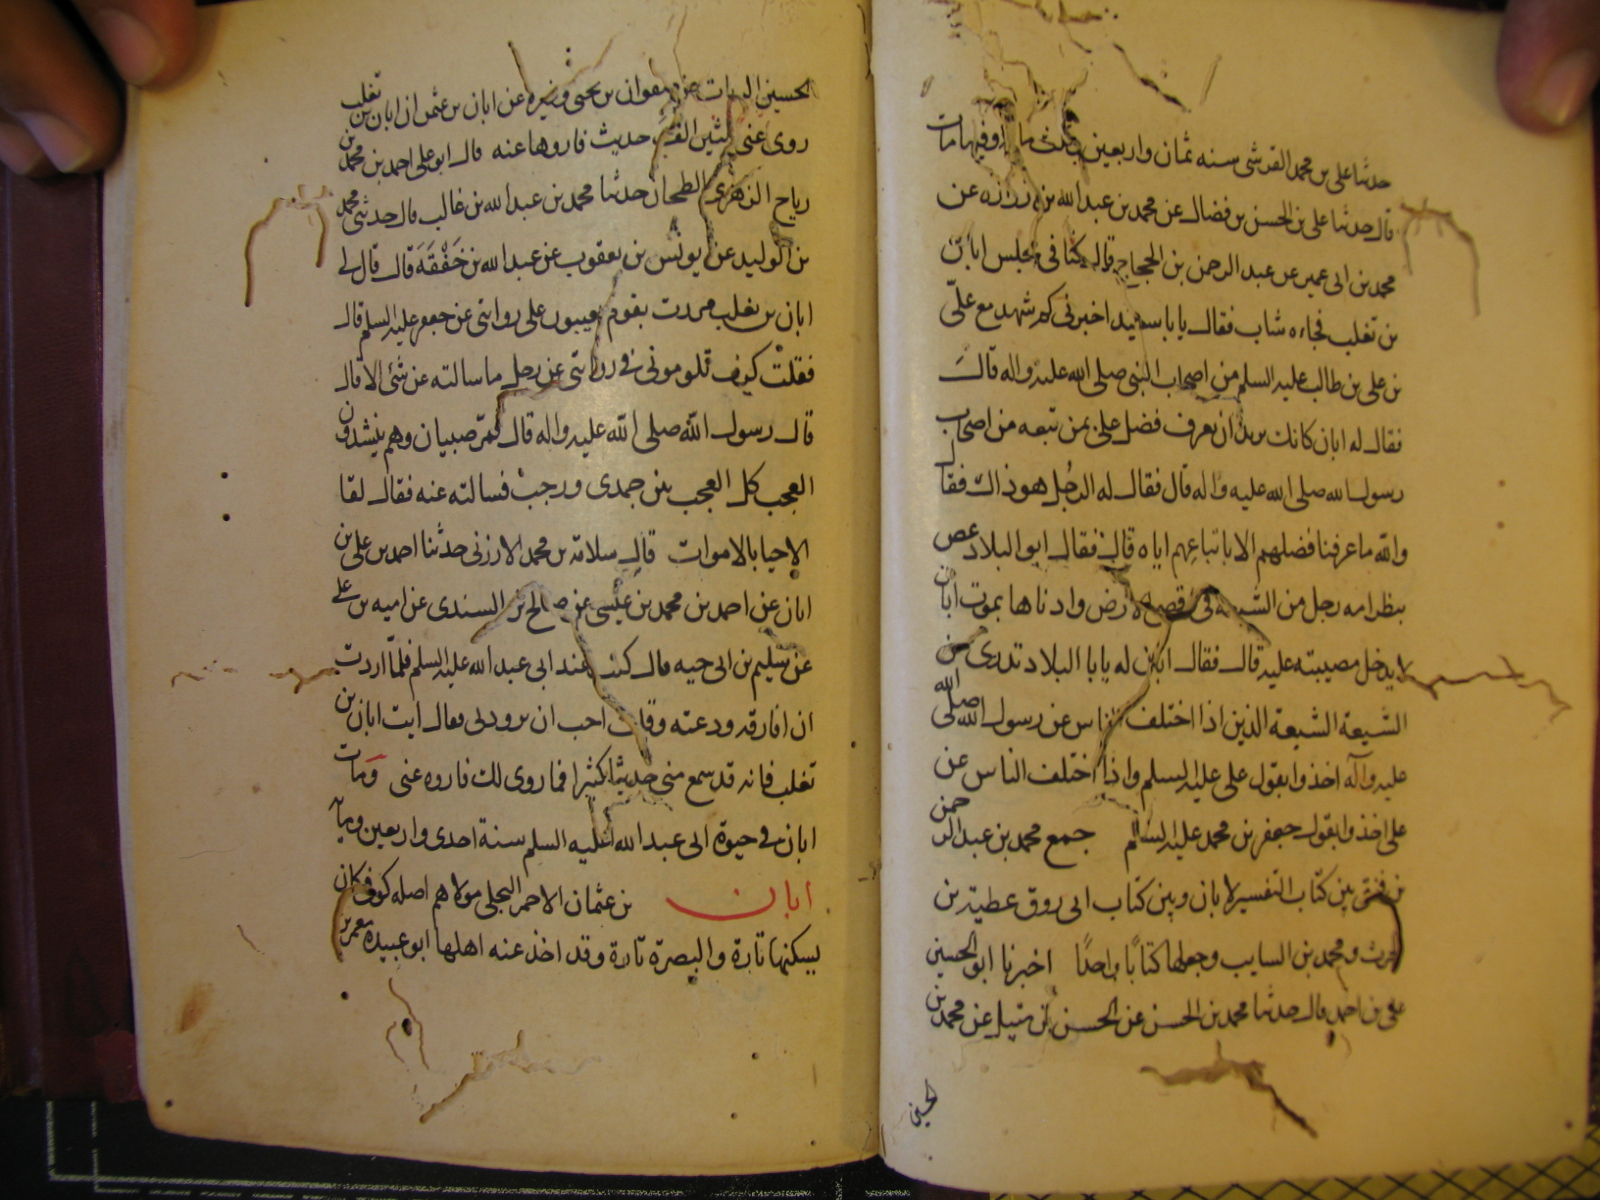 حدثنا على بن محمد القرشى سنه ثمان واربعين وثلث ما وفيها مات
قال حدثنا على بن الحسن بن فضال عن محمد بن عبد الله بن زراره عن
محمد بن ابى عمير عن عبد الرحمن بن الحجاج قال كنا فى مجلس ابان
بن تغلب فجاءه شاب فقال يا با سعيد اخبرنى كم شهد مع على
بن على بن طالب عليه السلم من اصحاب النبى صلى الله عليه واله قال
فقال له ابان كانك تريد ان تعرف فضل على بمن تبعه من اصحاب
رسول الله صلى الله عليه واله قال فقال له الرجل هو ذاك فقال
والله ما عرفنا فضلهم الا باتباعهم اياه قال فقال ابو البلاد عض
ببظر امه رجل من الشيعة فى اقصى الارض وادناها بموت ابان
لا يدخل مصيبته عليه قال فقال ابان له يا با البلاد تدرى من
الشيعة الشيعة الذين اذا اختلف الناس عن رسول الله صلى الله
عليه وآله اخذوا بقول على عليه السلم واذا اختلف الناس عن
على اخذوا بقول جعفر بن محمد عليه السلم جمع محمد بن عبد الرحمن
بن فنتى بين كتاب التفسير لابان وبين كتاب ابى روق عطية بن
الحرث ومحمد بن السايب وجعلها كتابا واحدا اخبرنا ابو الحسين
على بن احمد قال حدثنا محمد بن الحسن عن الحسن بن متيل عن محمد بن
الحسين
الحسين الزيات عن صفوان بن يحيى وغيره عن ابان بن عثمن ان ابان بن تغلب
روى عنى ثلثين الف حديث فاروها عنه قال ابو على احمد بن محمد بن
رياح الزهرى الطحان حدثنا محمد بن عبد الله بن غالب قال حدثنى محمد
بن الوليد عن يونس بن يعقوب عن عبد الله بن خفقة قال قال لى
ابان بن تغلب مررت بقوم يعيبون على روايتى عن جعفر عليه السلم قال
فقلت كيف تلومونى فى روايتى عن رجل ما سالته عن شئ الا قال
قال رسول الله صلى الله عليه واله قال فمر صبيان وهم ينشدون
العجب كل العجب بين جمدى ورجب فسالته عنه فقال لقا
الاحيا بالاموات قال سلامة بن محمد الارزنى حدثنا احمد بن على بن
ابان عن احمد بن محمد بن عيسى عن صالح بن السندى عن اميه بن على
عن سليم بن ابى حيه قال كنت عند ابى عبد الله عليه السلم فلما اردت
ان افارقه ودعته وقلت احب ان تزودنى فقال ايت ابان بن
تغلب فانه قد سمع منى حديثا كثيرا فما روى لك فاروه عنى ومات
ابان فى حيوة ابى عبد الله عليه السلم سنة احدى واربعين ومأ
ابان بن عثمان الاحمر البجلى مولاهم اصله كوفى كان
يسكنها تارة والبصرة تارة وقد اخذ عنه اهلها ابو عبيده معمر بن